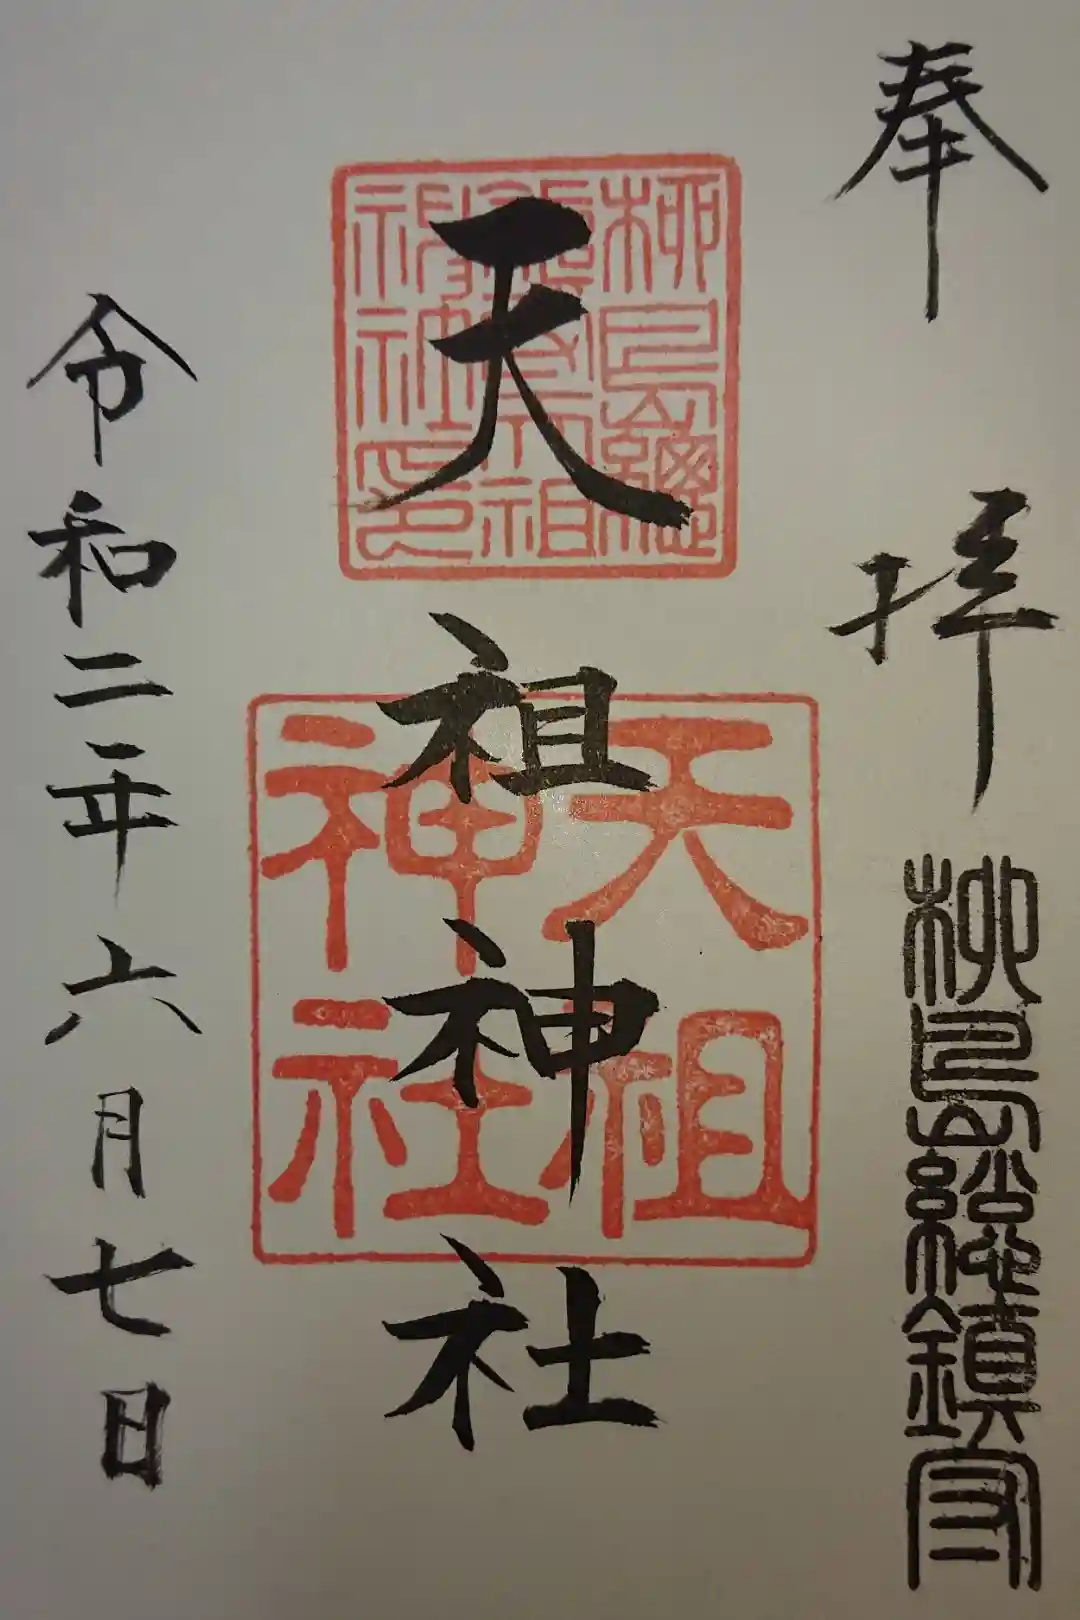 奉拝
柳島総鎮守
天祖神社
柳島總
鎮守天祖
神社印
天祖
神社
令和二年六月七日